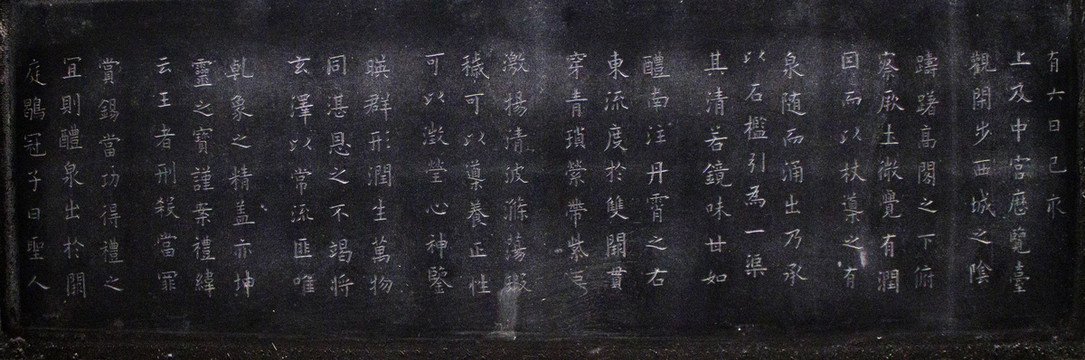 有六日己亥
上及中宮歷覽臺
觀閒步西城之陰
躊躇高閣之下俯
察厥土微覺有潤
因而以杖導之有
泉隨而涌出乃承
以石檻引為一渠
其清若鏡味甘如
醴南注丹霄之右
東流度於雙闕貫
穿青瑣縈帶紫房
激揚清波滌蕩瑕
穢可以導養正性
可以澂瑩心神鑒
暎群形潤生萬物
同湛恩之不竭將
玄澤以常流匪唯
乹象之精蓋亦坤
靈之寶謹案禮緯
云王者刑殺當罪
賞錫當功得禮之
宜則醴泉出於闕
庭鶡冠子曰聖人